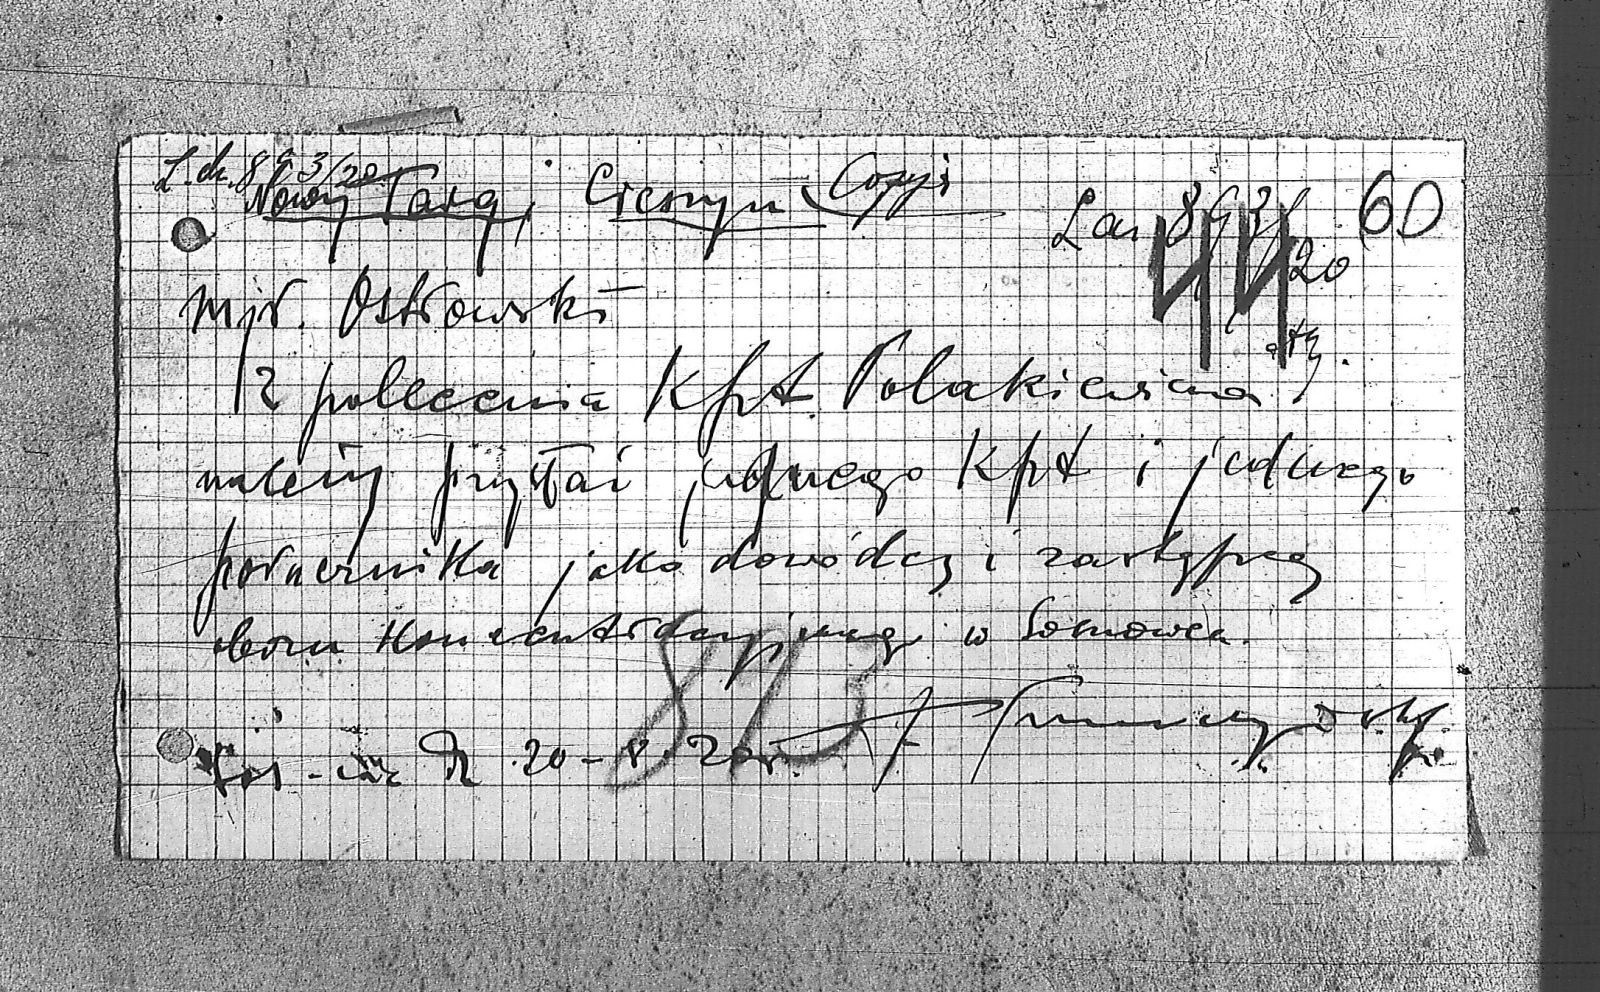 L. dz. 893/20
Nowy Targ, Cieszyn Copyi
L dz 893/20 60
44
Mjr. Ostrowski
Z polecenia Kpt. Polakiewicza
należy przysłać jednego Kpt i jednego
porucznika jako dowódcę i zastępcę
obozu koncentracyjnego w Sosnowcu.
893
20-8 20r.